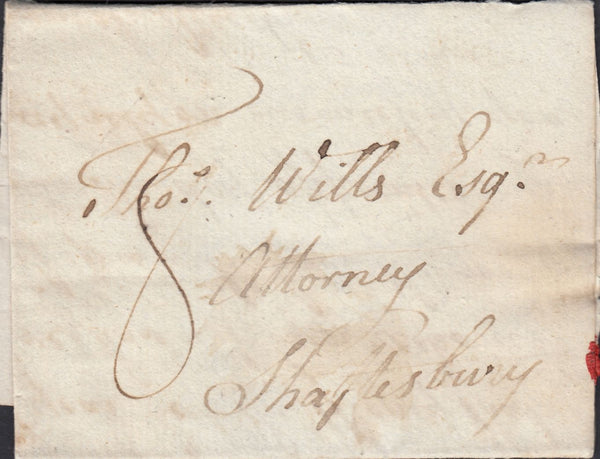 Tho.s Wills Esq.r
8
Attorney
Shaftesbury